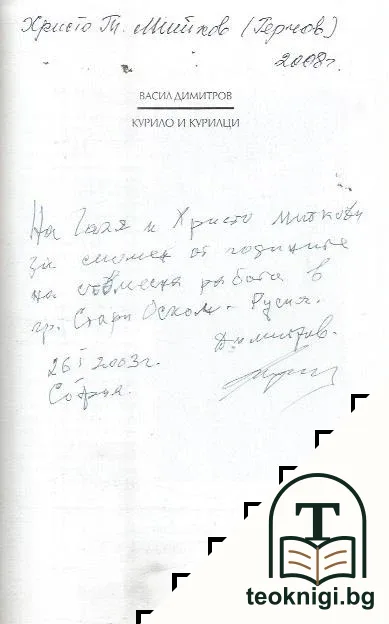 Христо Т. Митков (Герчов)
2008г.
ВАСИЛ ДИМИТРОВ
КУРИЛО И КУРИЛЦИ
На Галя и Христо Миткови
за спомен от годините
на съвместна работа в
гр. Стари Оскол - Русия.
Димитров.
26 I 2003г.
София.
T
teoknigi.bg